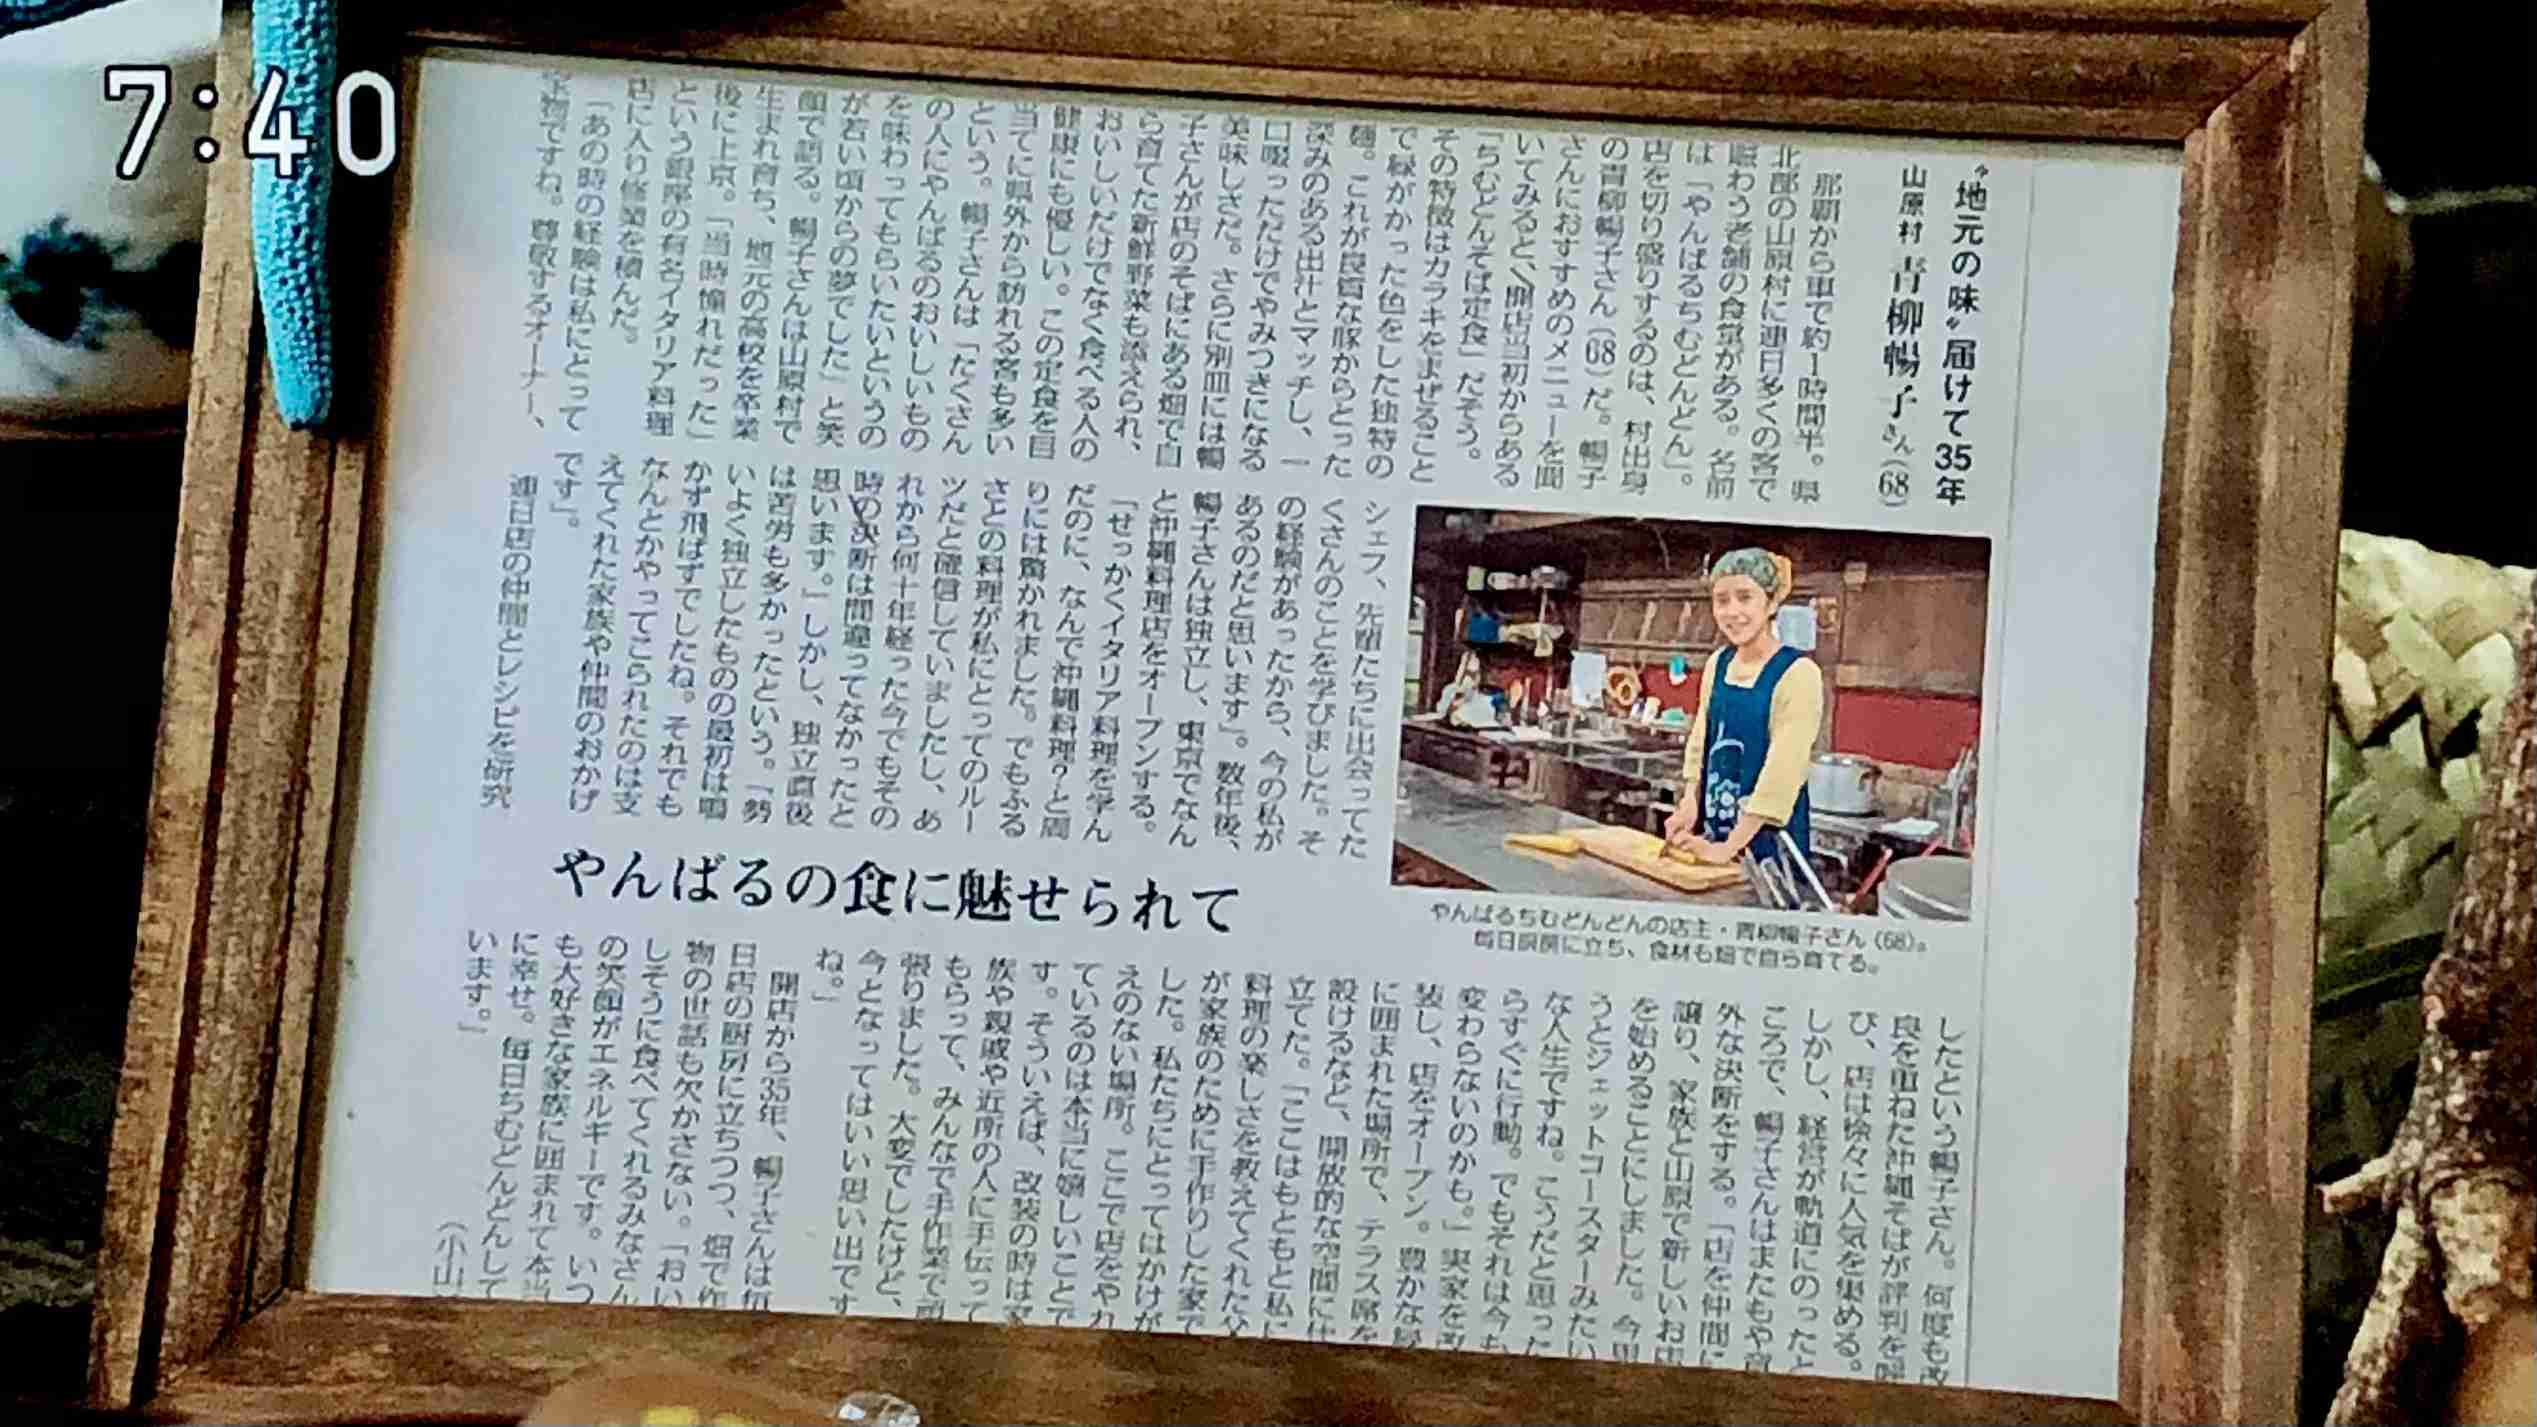 7:40
〝地元の味〟届けて35年
山原村 青柳暢子さん(68)
那覇から車で約1時間半。県
北部の山原村に連日多くの客で
賑わう老舗の食堂がある。名前
は「やんばるちむどんどん」。
店を切り盛りするのは、村出身
の青柳暢子さん(68)だ。暢子
さんにおすすめのメニューを聞
いてみると、開店当初からある
「ちむどんそば定食」だそう。
その特徴はカラキをまぜること
で緑がかった色をした独特の
麺。これが良質な豚からとった
深みのある出汁とマッチし、一
口啜っただけでやみつきになる
美味しさだ。さらに別皿には暢
子さんが店のそばにある畑で自
ら育てた新鮮野菜も添えられ、
おいしいだけでなく食べる人の
健康にも優しい。この定食を目
当てに県外から訪れる客も多い
という。暢子さんは「たくさん
の人にやんばるのおいしいもの
を味わってもらいたいというの
が若い頃からの夢でした」と笑
顔で語る。暢子さんは山原村で
生まれ育ち、地元の高校を卒業
後に上京。「当時憧れだった」
という銀座の有名イタリア料理
店に入り修業を積んだ。
「あの時の経験は私にとって
宝物ですね。尊敬するオーナー、
シェフ、先輩たちに出会ってた
くさんのことを学びました。そ
の経験があったから、今の私が
あるのだと思います」。数年後、
暢子さんは独立し、東京でなん
と沖縄料理店をオープンする。
「せっかくイタリア料理を学ん
だのに、なんで沖縄料理？と周
りには驚かれました。でもふる
さとの料理が私にとってのルー
ツだと確信していましたし、あ
れから何十年経った今でもその
時の決断は間違ってなかったと
思います。」しかし、独立直後
は苦労も多かったという。「勢
いよく独立したものの最初は鳴
かず飛ばずでしたね。それでも
なんとかやってこられたのは支
えてくれた家族や仲間のおかげ
です」。
連日店の仲間とレシピを研究
やんばるの食に魅せられて
やんばるちむどんどんの店主・青柳暢子さん(68)。
毎日厨房に立ち、食材も畑で自ら育てる。
したという暢子さん。何度も改
良を重ねた沖縄そばが評判を呼
び、店は徐々に人気を集める。
しかし、経営が軌道にのったと
ころで、暢子さんはまたもや意
外な決断をする。「店を仲間に
譲り、家族と山原で新しいお店
を始めることにしました。今思
うとジェットコースターみたい
な人生ですね。こうだと思った
らすぐに行動。でもそれは今も
変わらないのかも。」実家を改
装し、店をオープン。豊かな
に囲まれた場所で、テラス席を
設けるなど、開放的な空間に仕
立てた。「ここはもともと私に
料理の楽しさを教えてくれた父
が家族のために手作りした家で
した。私たちにとってはかけが
えのない場所。ここで店をやれ
ているのは本当に嬉しいことで
す。そういえば、改装の時は家
族や親戚や近所の人に手伝って
もらって、みんなで手作業で頑
張りました。大変でしたけど、
今となってはいい思い出です
ね。」
開店から35年、暢子さんは毎
日店の厨房に立ちつつ、畑で作
物の世話も欠かさない。「おい
しそうに食べてくれるみなさん
の笑顔がエネルギーです。いつ
も大好きな家族に囲まれて本当
に幸せ。毎日ちむどんどんして
います。」
(小山